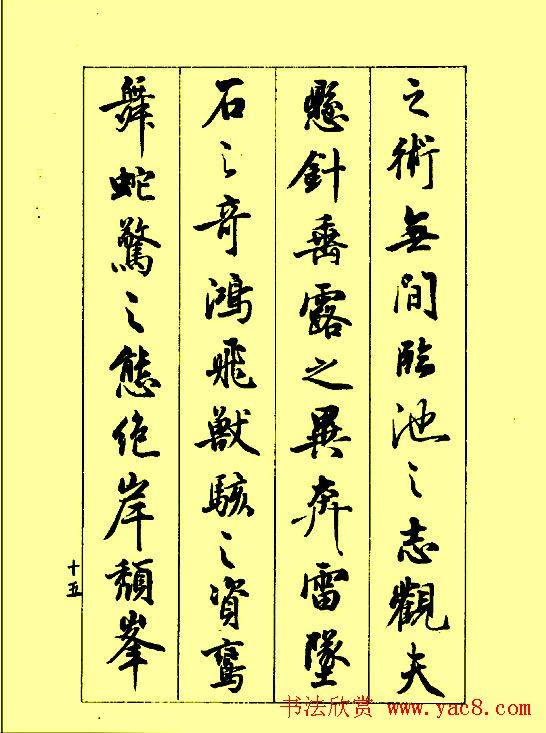 之術無間臨池之志觀夫
懸針垂露之異奔雷墜
石之奇鴻飛獸駭之資鸞
舞蛇驚之態絶岸頹峯
十五
书法欣赏 www.yac8.com